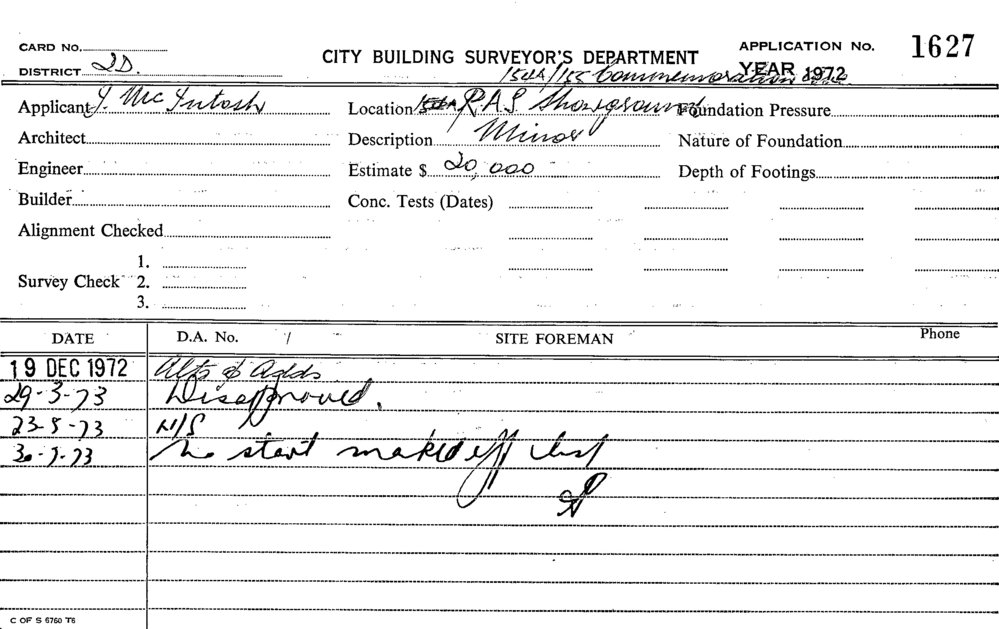 CARD NO.
CITY BUILDING SURVEYOR'S DEPARTMENT
APPLICATION No. 1627
DISTRICT 2D.
YEAR 1972
154A/155 Commemoration
Applicant J. McIntosh
Location R.A.S Showground
Foundation Pressure
Architect
Description Minor
Nature of Foundation
Engineer
Estimate $ 20,000
Depth of Footings
Builder
Conc. Tests (Dates)
Alignment Checked
Survey Check
1.
2.
3.
DATE D.A. No. / SITE FOREMAN Phone
19 DEC 1972 Alts & Adds
29-3-73 Disapproved.
23-5-73 N/S
30-7-73 No start marked off list
C OF S 6760 T6